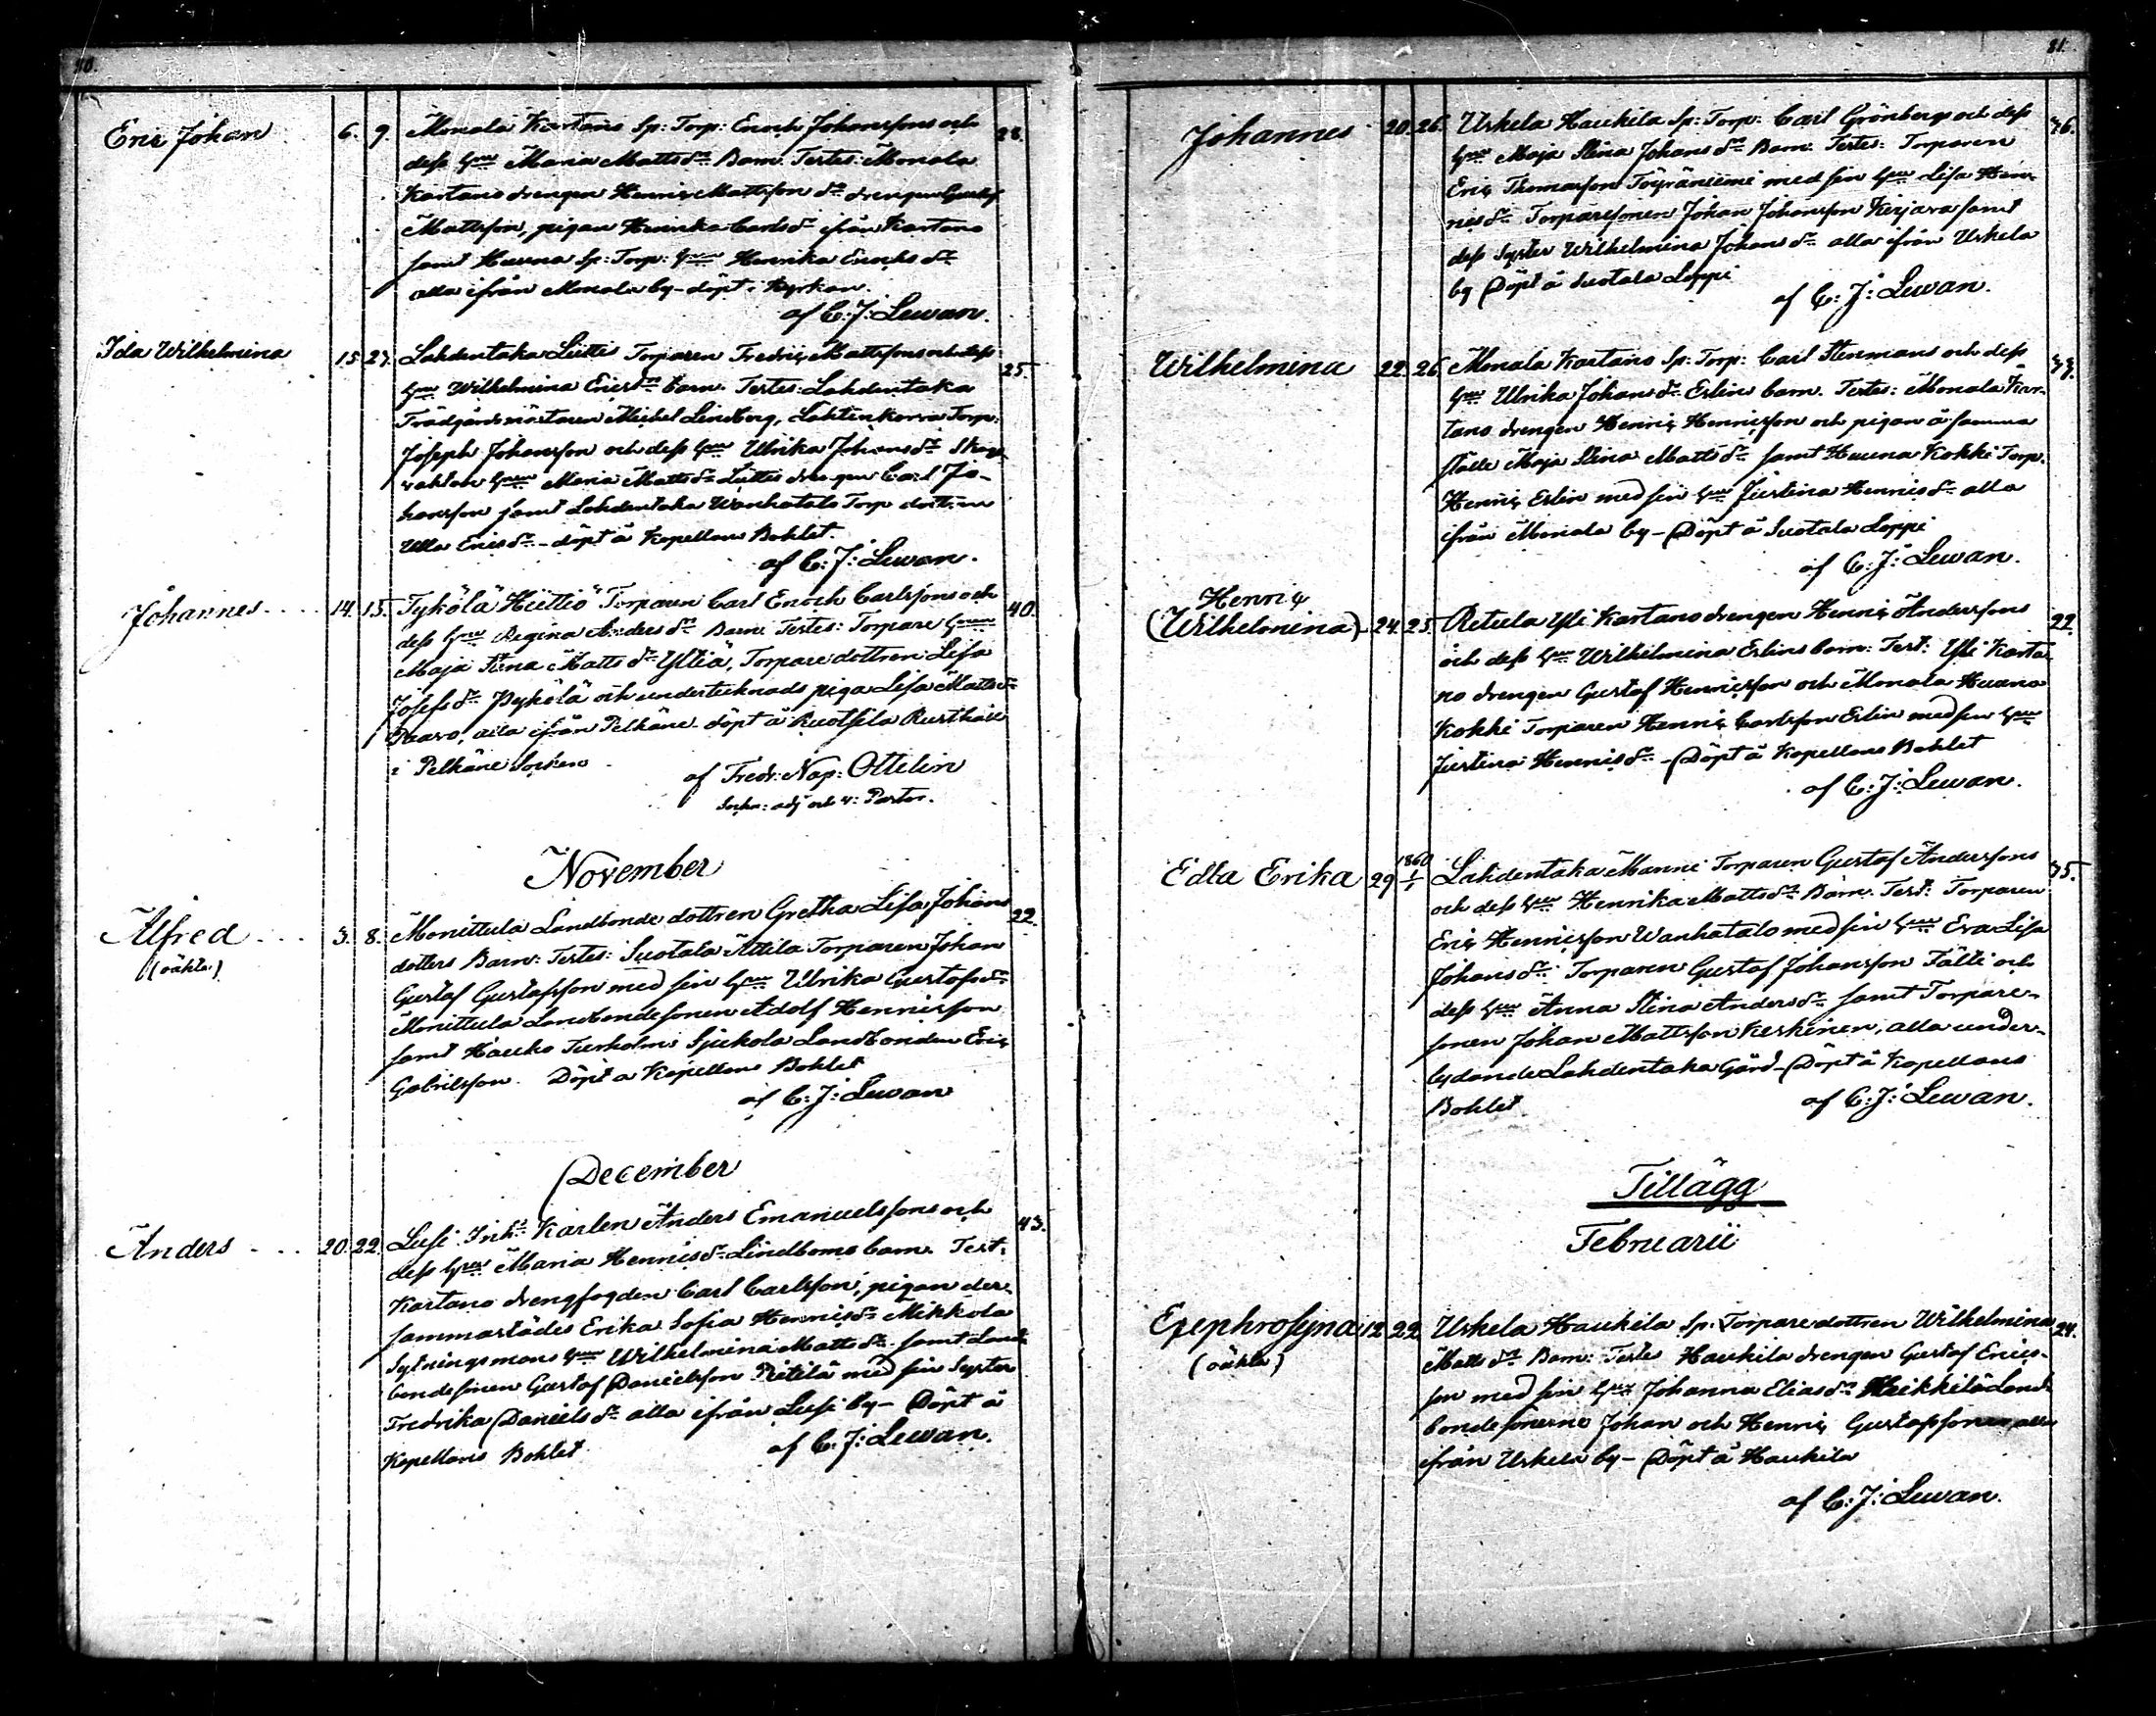 80.
Eric Johan 6. 9. Monala Kartano Sp: Torp: Enoch Johanssons och 28.
dess hu Maria Mattsdr Barn. Testes: Monala
Kartano drengen Henric Mattsson dr drengen Gustaf
Mattsson, pigan Henrika Carlsdr ifrån Kartano
samt Huvna Sp: Torp: hu Henrika Enochsdr
alla ifrån Monala by – döpt i Kyrkan.
af C: J: Lewan.
Ida Wilhelmina 15 27. Lahdentaka Liittis Torparen Fredric Mattssons och dess 25.
hu Wilhelmina Ericsdr barn. Testes: Lahdentaka
Trädgårdsmästaren Michel Lindborg, Lahtinkorva Torp:
Joseph Johansson och dess hu Ulrika Johansdr
hu Maria Mattsdr Liittis drengen Carl Jo-
hansson samt Lahdentaka Wanhatalo Torp dottren
Ulla Ericsdr – döpt å Kapellans Bohlet.
af C: J: Lewan.
Johannes 14. 15. Tykölä Hiittiö Torparen Carl Enoch Carlssons och 40.
dess hu Regina Andersdr Barn. Testes: Torpare hu
Maja Stina Mattsdr Yltiä, Torpare dottren Lisa
Josefsdr Pykölä och undertecknads piga Lisa Mattsdr
Paavo, alla ifrån Pelkäne döpt å Ruotsila Rusthåll
i Pelkäne Socken
af Fredr: Nap: Ottelin
Sockn: adj och v: Pastor.
November
Alfred 3. 8. Monittula Landbonde dottren Gretha Lisa Johans 22.
(oäkta) dotters Barn: Testes: Suotala Attila Torparen Johan
Gustaf Gustafsson med sin hu Ulrika Gustafsdr
Monittula Landbondesonen Adolf Hennicsson
samt Hauho Turholmi Sjukola Landbonden Eric
Gabrielsson. Döpt a Kapellans Bohlet
af C: J: Lewan
December
Anders 20. 22. Lusi Inhs Karlen Anders Emanuelssons och 43.
dess hu Maria Henricsdr Lindboms barn. Test:
Kartano drengfogden Carl Carlsson, pigan der-
sammastädes Erika Sofia Henricsdr Mikkola
Sytningsmans hu Wilhelmina Mattsdr samt Land-
bondesonen Gustaf Danielsson Pietilä med sin Syster
Fredrika Danielsdr alla ifrån Lusi by – Döpt å
Kapellans Bohlet. af C: J: Lewan.
81.
Johannes 20. 26. Uskela Haukila Sp: Torp: Carl Grönbergs och dess 36.
hu Maja Stina Johansdr Barn. Testes: Torparen
Eric Thomasson Töyräniemi med sin hu Lisa Hen-
ricsdr Torparesonen Johan Johansson Kerjava samt
dess Syster Wilhelmina Johansdr alla ifrån Uskela
by Döpt å Suotala Leppi
af C: J: Lewan.
Wilhelmina 22. 26. Monala Kartano Sp: Torp: Carl Stenmans och dess 33.
hu Ulrika Johansdr Erlins barn. Testes: Monala Kar-
tano drengen Henric Hennicsson och pigan å samma
ställe Maja Stina Mattsdr samt Huuna Kokki Torp.
Henric Erlin med sin hu Justina Henricsdr alla
ifrån Monala by – Döpt å Suotala Leppi
af C: J: Lewan.
Henric
(Wilhelmina) 24. 25. Retula Yli Kartano drengen Henric Anderssons 22.
och dess hu Wilhelmina Erlins barn: Test: Yli Karta-
no drengen Gustaf Henricsson och Monala Huuna
Kokki Torparen Henric Carlsson Erlin med sin hu
Justina Henricsdr – Döpt å Kapellans Bohlet
af C: J: Lewan.
Edla Erika 29 1860 1/1 Lahdentaka Manni Torparen Gustaf Anderssons 35.
och dess hu Henrika Mattsdr Barn. Test: Torparen
Eric Hennicsson Wanhatalo med sin hu Eva Lisa
Johansdr Torparen Gustaf Johansson Fälti och
dess hu Anna Stina Andersdr samt Torpare-
sonen Johan Mattsson Keskinen, alla under-
lydande Lahdentaka Gård – Döpt å Kapellans
Bohlet af C: J: Lewan.
Tillägg
Februarii
Epephrosyna 12. 22. Uskela Haukila Sp: Torpare dottren Wilhelmina 24.
(oäkta) Mattsdr Barn: Teste Haukila drengen Gustaf Erics-
son med sin hu Johanna Eliasdr Heikkilä Land-
bondesönerne Johan och Henric Gustafssoner alla
ifrån Uskela by – Döpt å Haukila
af C: J: Lewan.